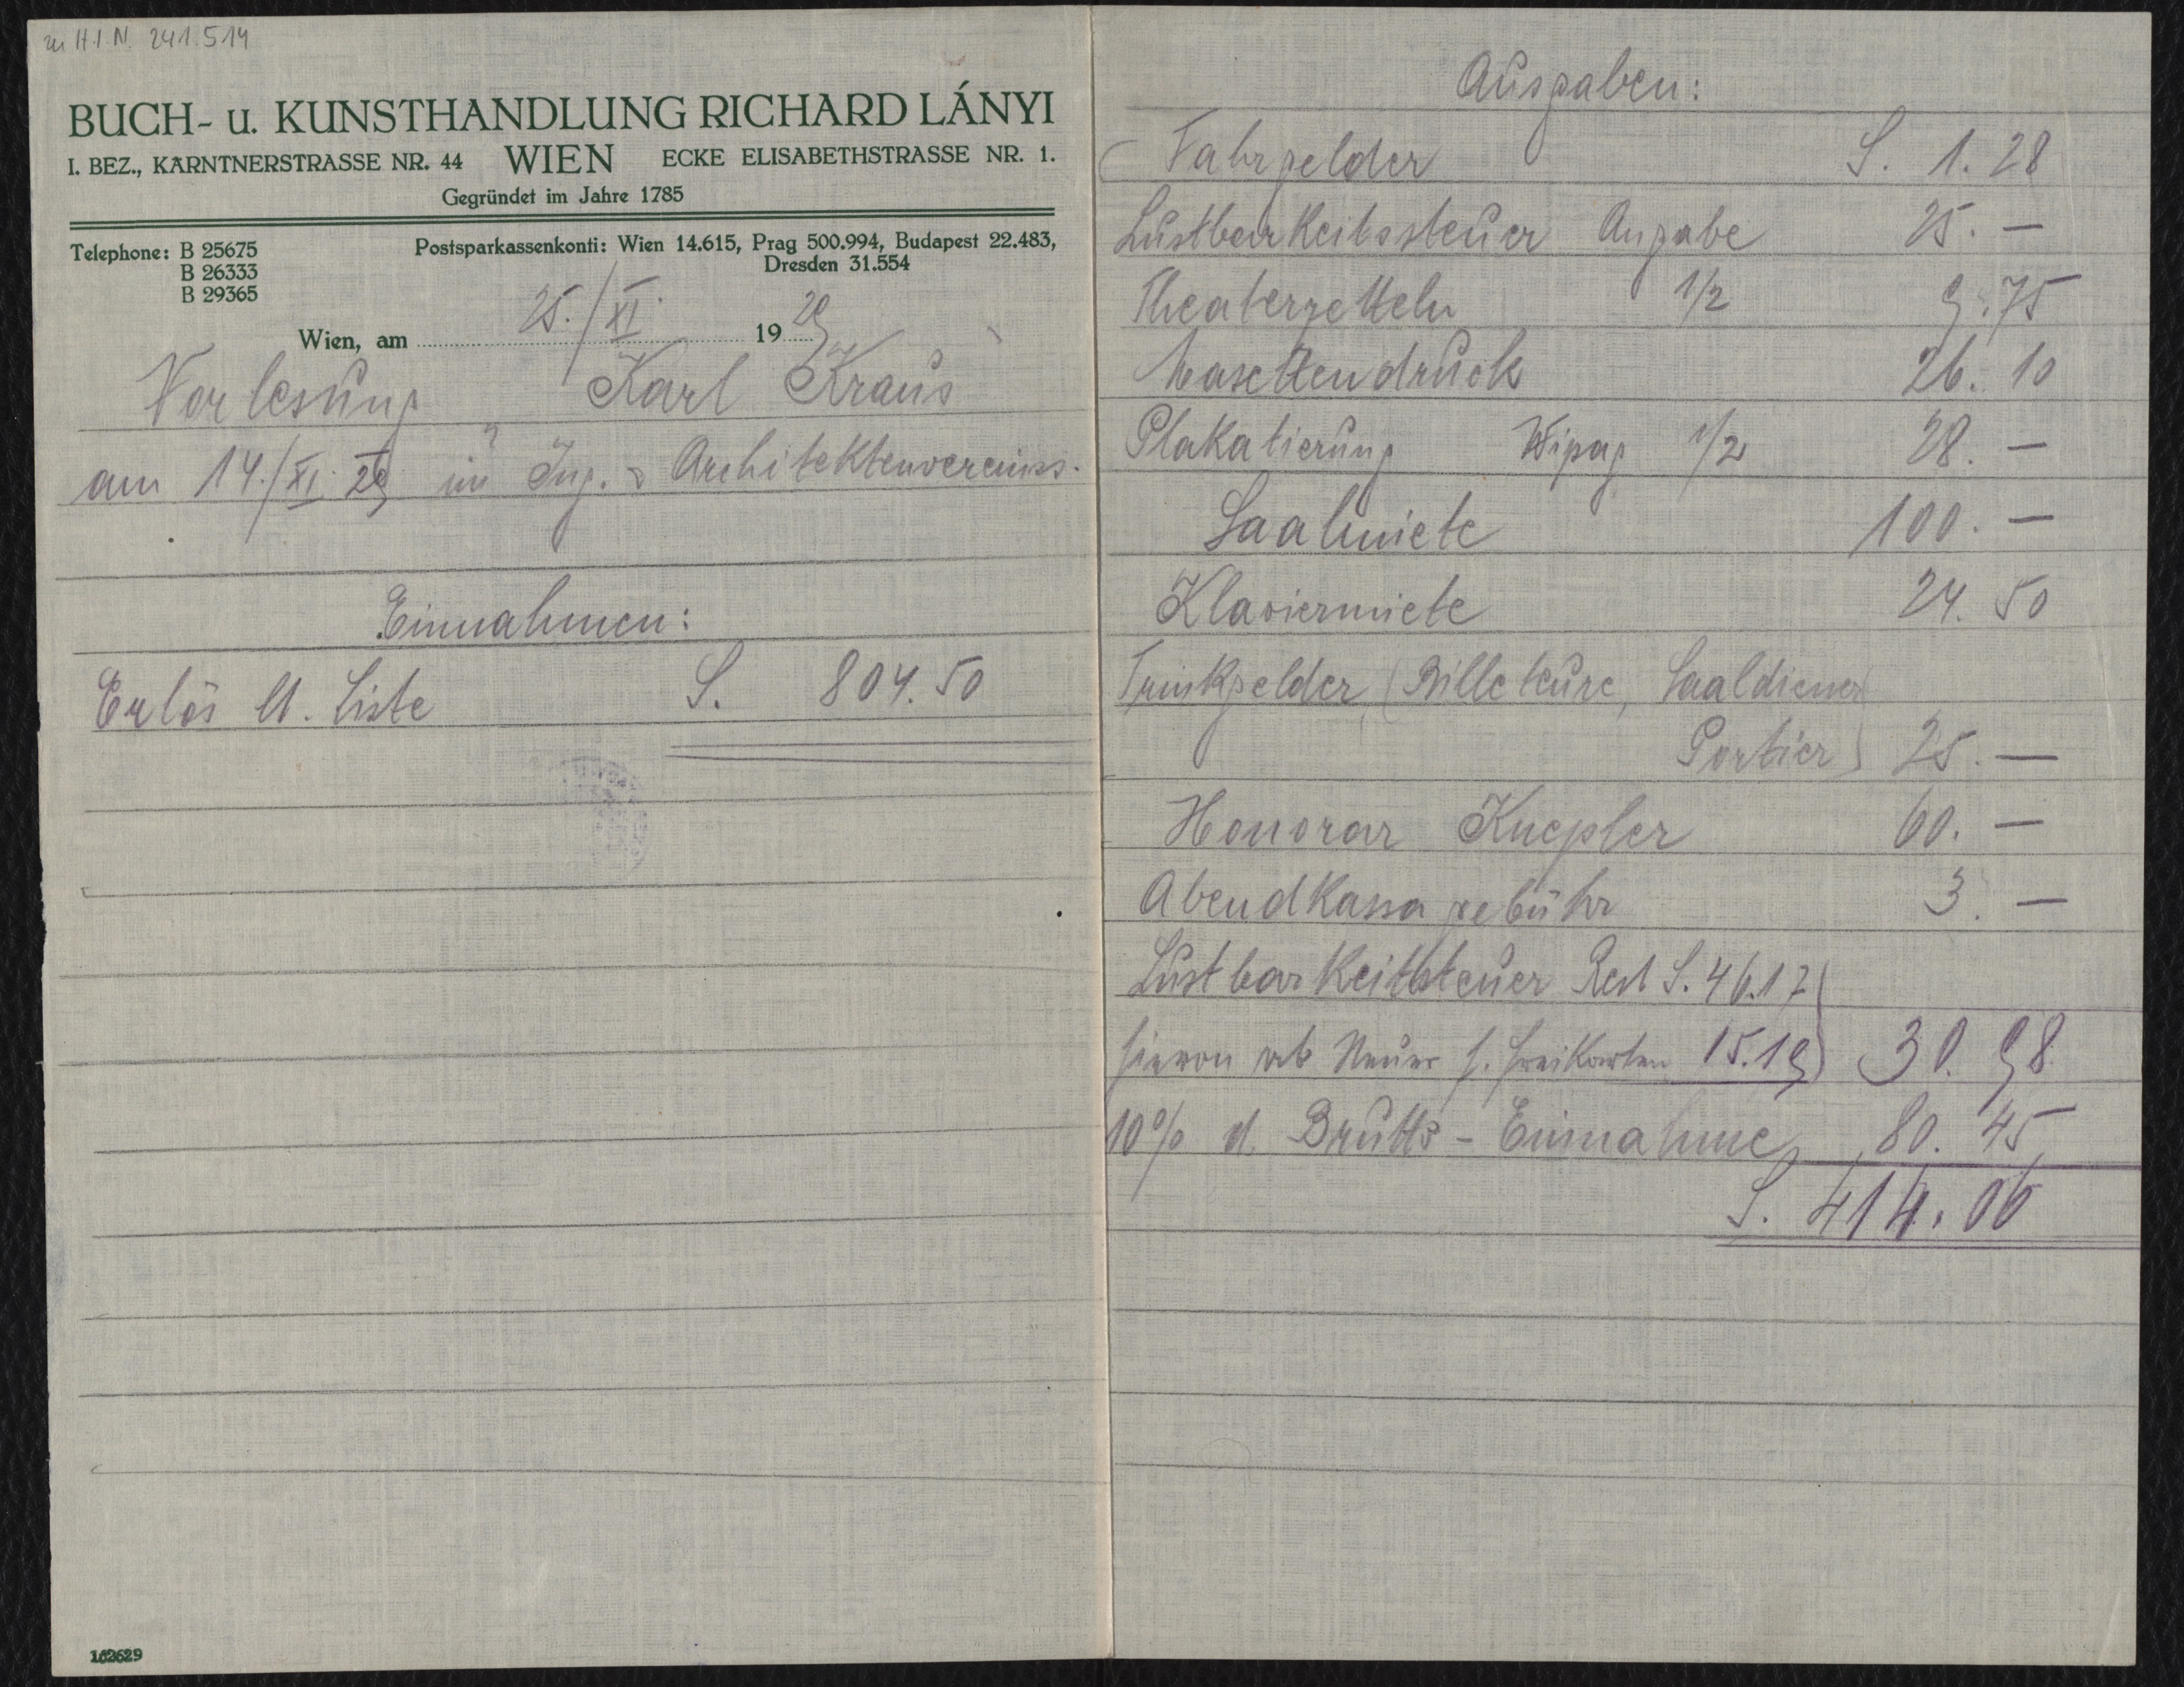 zu H.I.N. 241.514
BUCH- u. KUNSTHANDLUNG RICHARD LÁNYI
I. BEZ., KÄRNTNERSTRASSE NR. 44 WIEN ECKE ELISABETHSTRASSE NR. 1.
Gegründet im Jahre 1785
Telephone: B 25675
B 26333
B 29365
Postsparkassenkonti: Wien 14.615, Prag 500.994, Budapest 22.483,
Dresden 31.554
Wien, am 25./XI. 1929
Vorlesung Karl Kraus
am 14./XI. 29 im Ing. & Architektenvereins.
Einnahmen:
Erlös lt. Liste S. 804.50
102629
Ausgaben:
Fahrgelder S. 1.28
Lustbarkeitssteuer Angabe 25.—
Theaterzetteln 1/2 9.75
26.10
Plakatierung Wipag 1/2 28.—
Saalmiete 100.—
Klaviermiete 24.50
Trinkgelder (Billeteure, Saaldiener
Portier) 25.—
Honorar Knepler 60.—
Abendkassagebühr 3.—
Lustbarkeitsteuer Rest S. 46.17
hievon ab Steuer f. Freikarten 15.19) 30.98
10% d. Brutto-Einnahme 80.45
S. 414.06